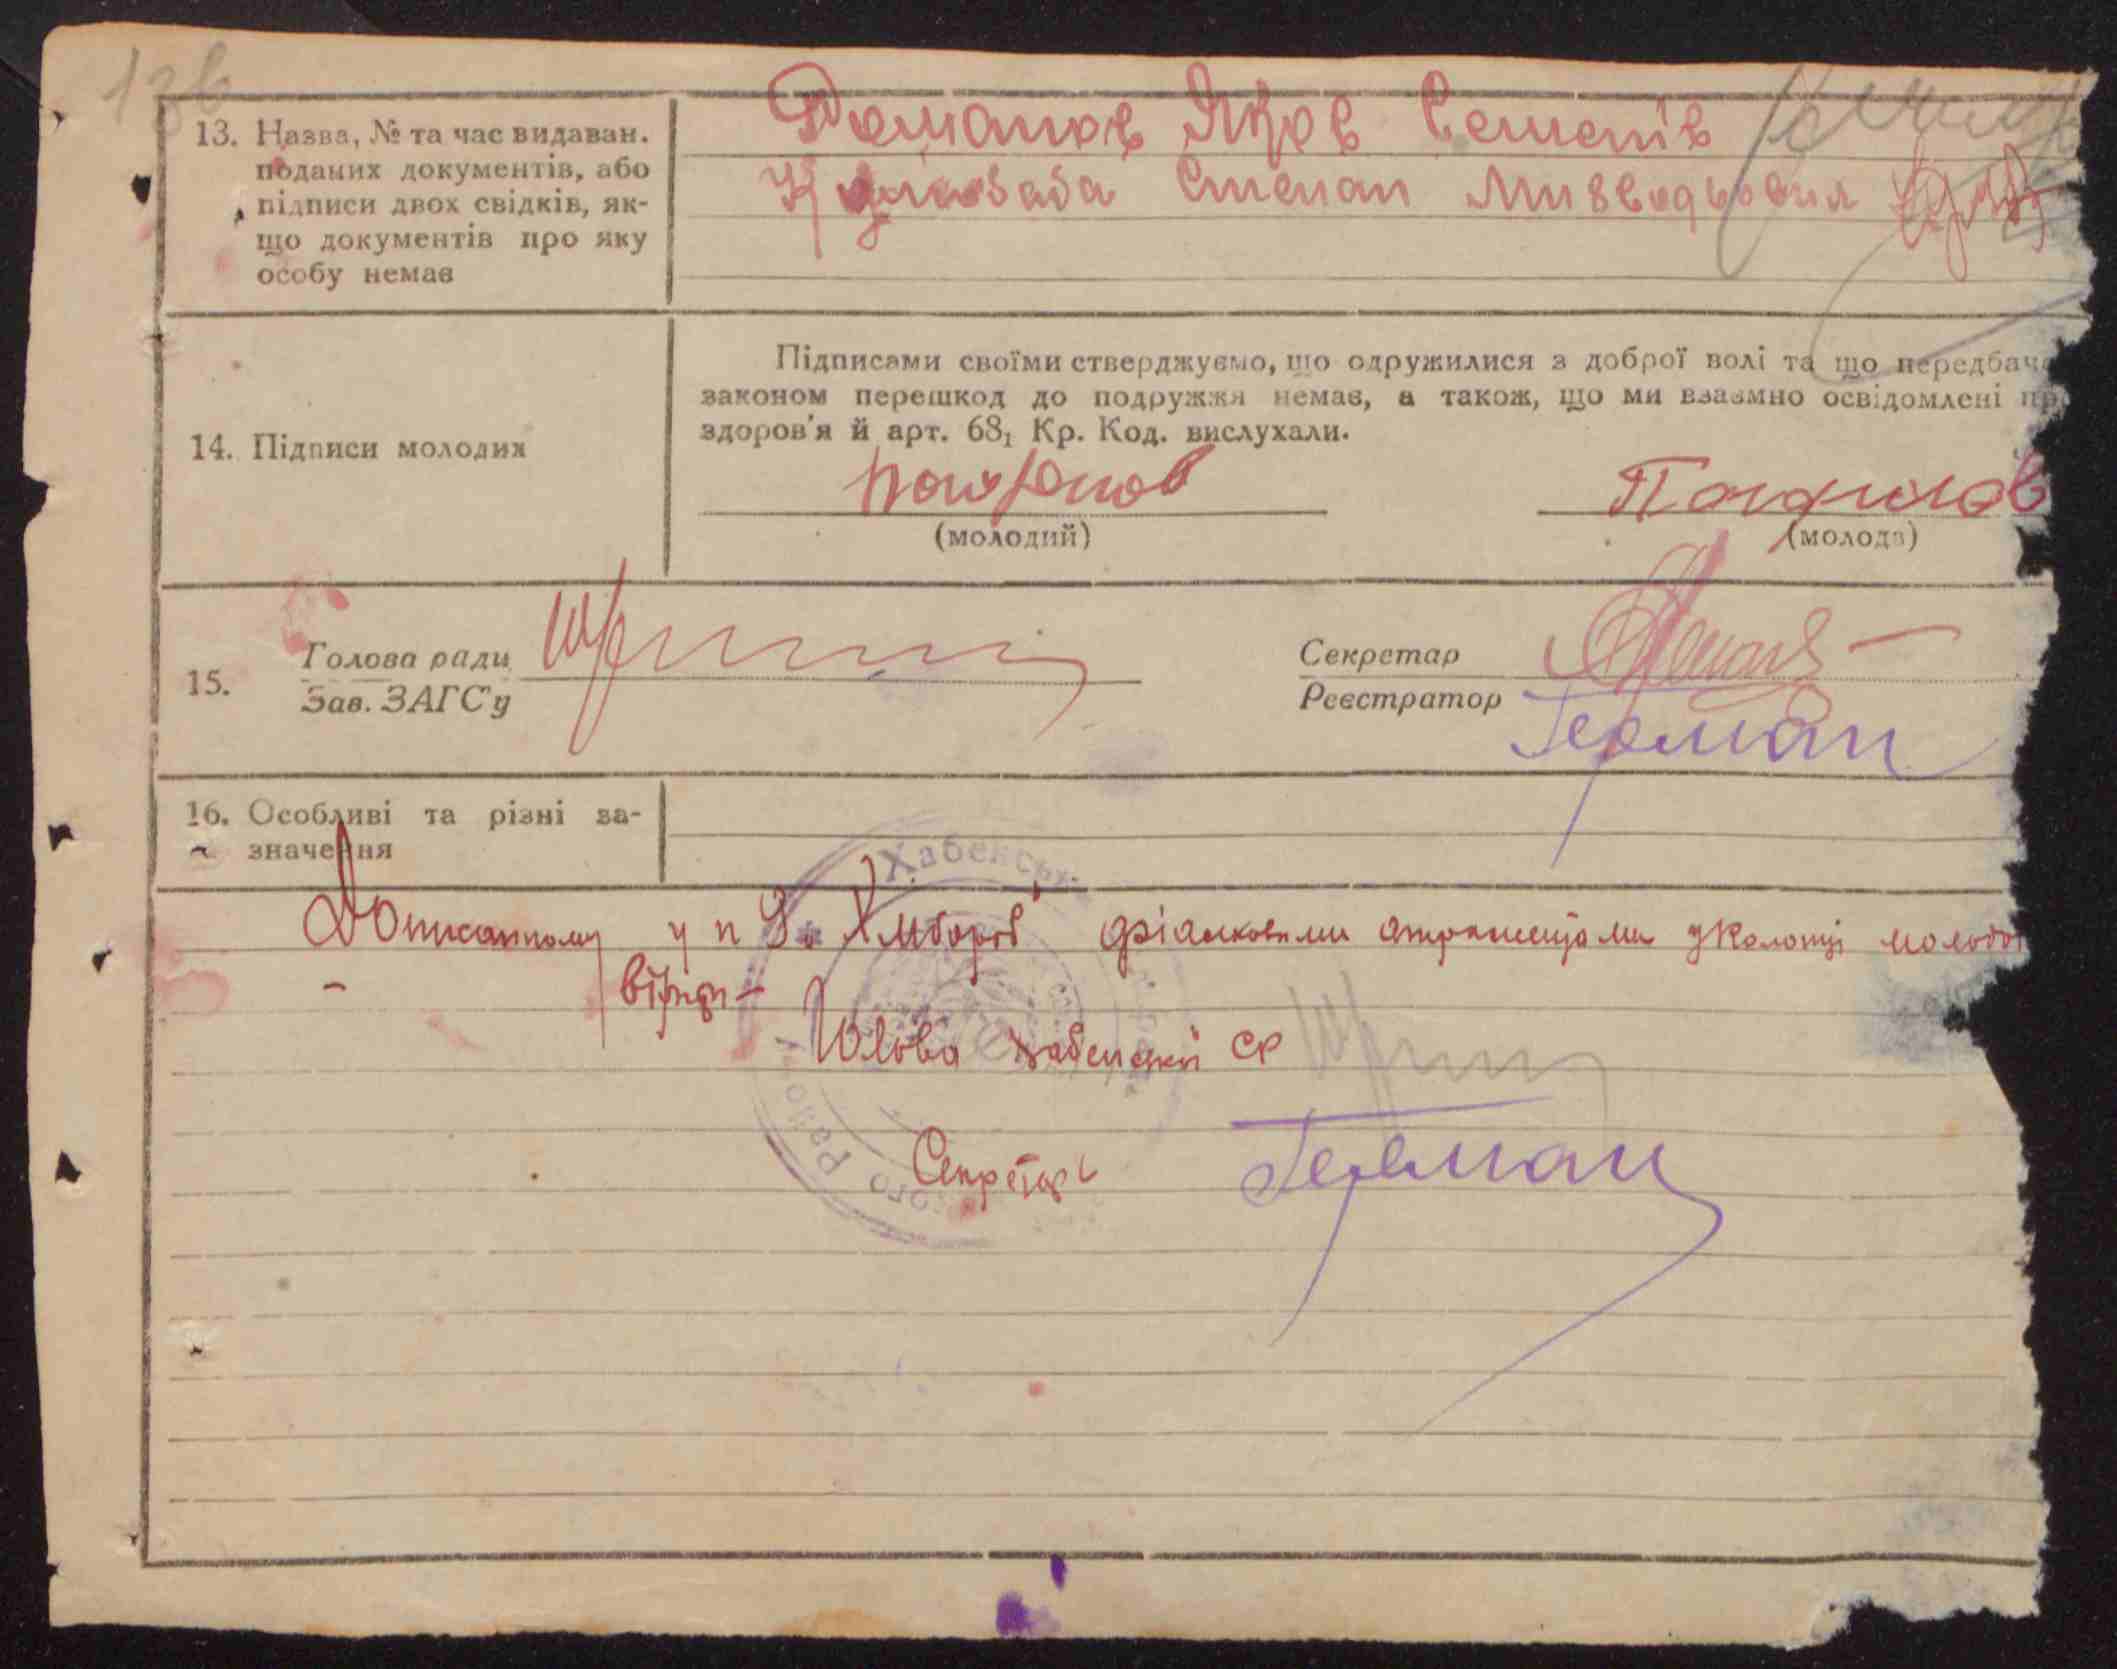 13. Назва, № та час видаван.
поданих документів, або
підписи двох свідків, як-
що документів про яку
особу немає
Романов Яков Семенів
Степан
14. Підписи молодих
Підписами своїми стверджуємо, що одружилися з доброї волі та що передбаче
законом перешкод до подружжя немає, а також, що ми взаємно освідомлені пр
здоров'я й арт. 68₁ Кр. Код. вислухали.
Панфилов
(молодий)
(молода)
15.
Голова ради
Зав. ЗАГС'у
Секретар
Реєстратор
Герман
16. Особливі та різні за-
значення
Хабенськ
Дописанному у п 9 "Хлібороб" фіалковими
вірити
Голова Хабенської СР
Секретарь Герман